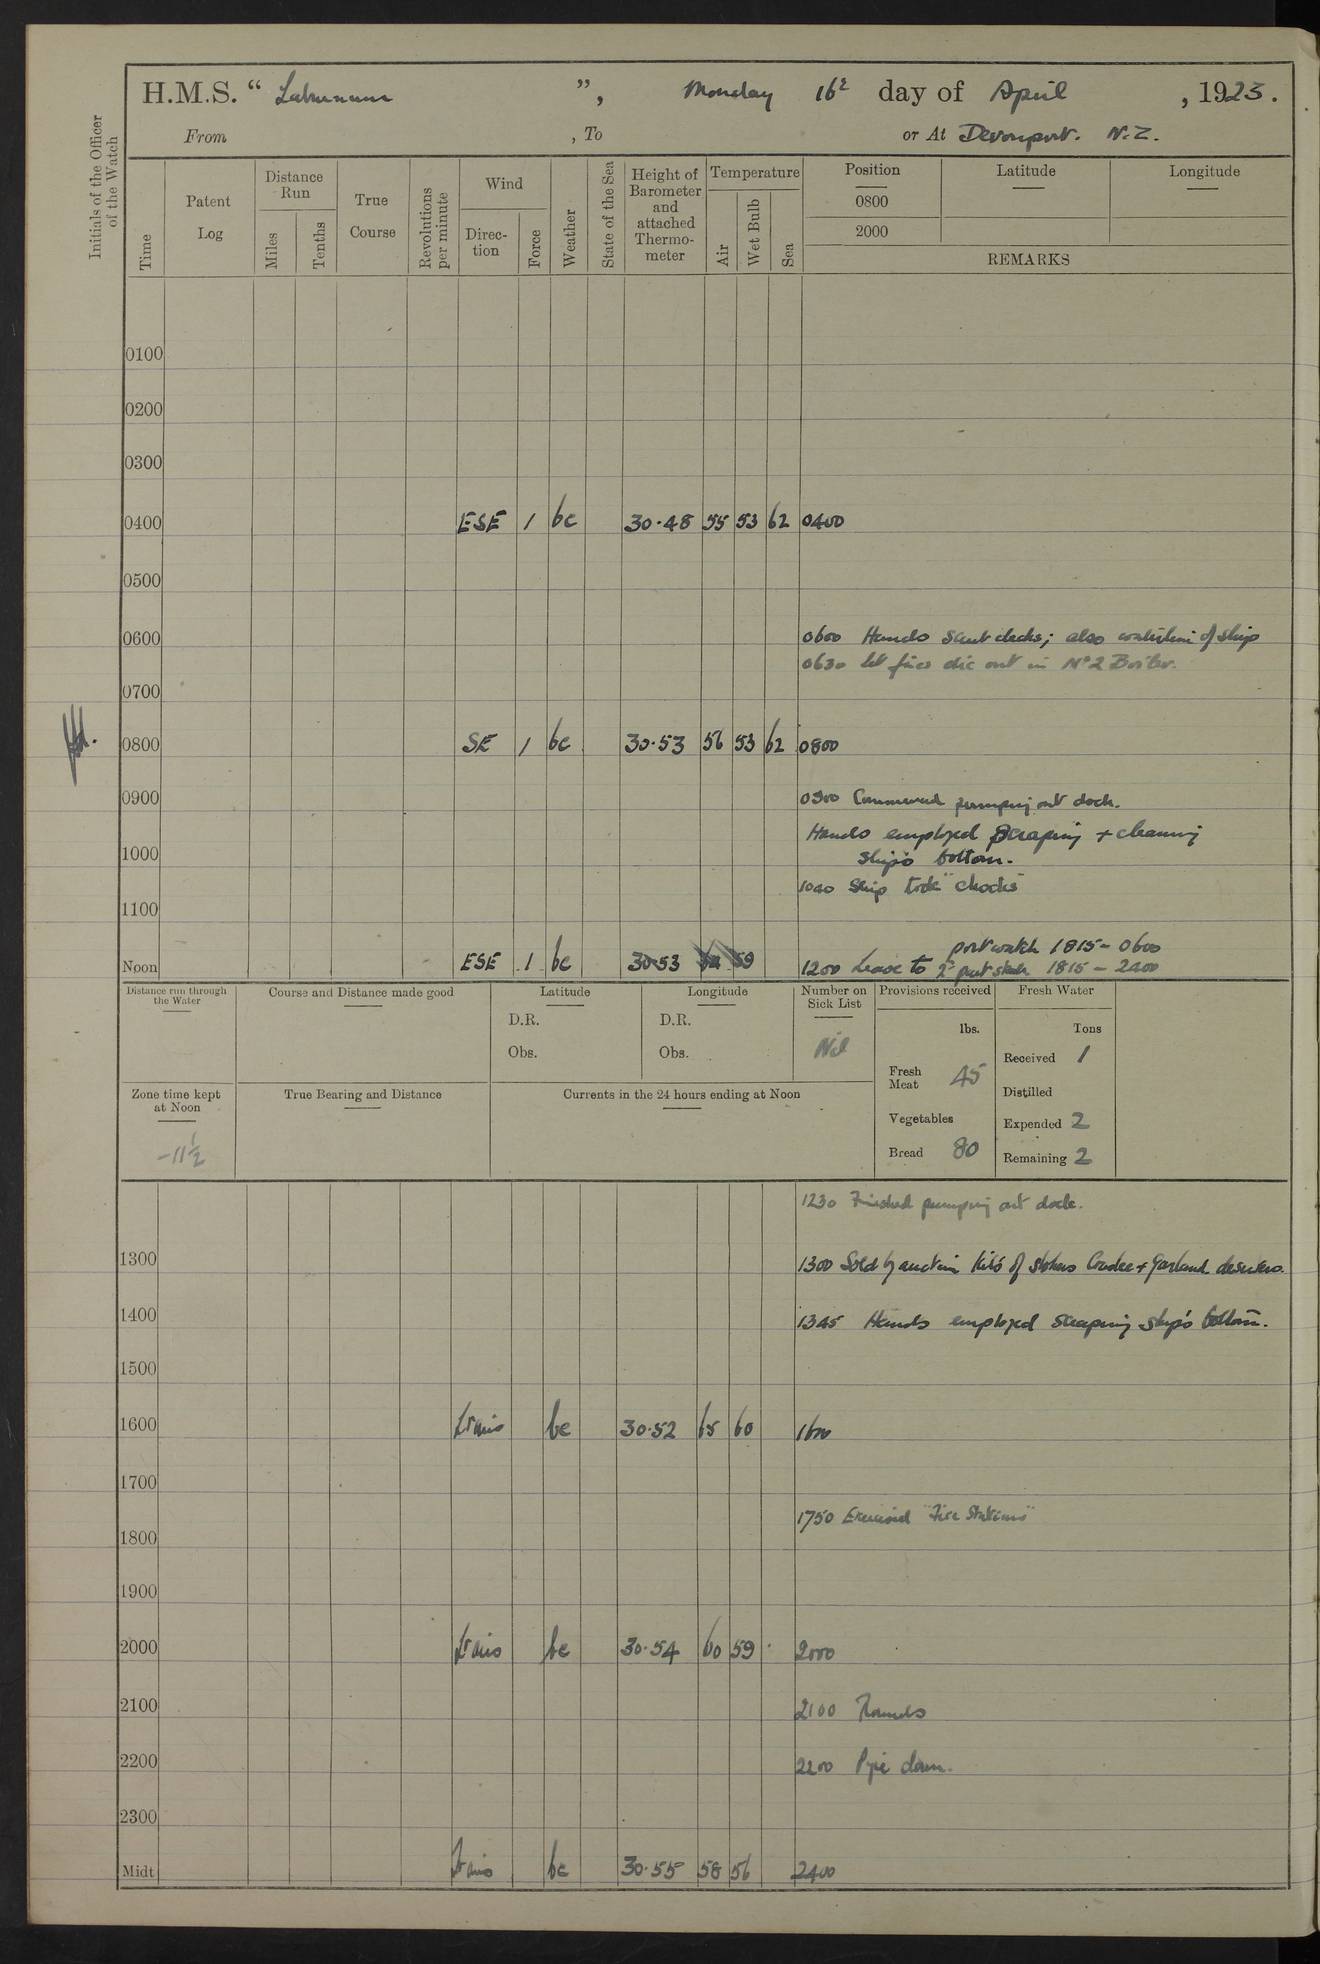 H.M.S. “ Laburnum ”, Monday 16th day of April , 1923.
From , To or At Devonport. N.Z.
Initials of the Officer of the Watch
Time
Patent Log
Distance Run
Miles
Tenths
True Course
Revolutions per minute
Wind
Direc-tion
Force
Weather
State of the Sea
Height of Barometer and attached Thermo-meter
Temperature
Air
Wet Bulb
Sea
Position
0800
2000
Latitude
Longitude
REMARKS
0100
0200
0300
0400 ESE 1 bc 30.48 55 53 62 0400
0500
0600 0600 Hands scrub decks; also waterline of ship
0630 let fires die out in No 2 Boiler.
0700
0800 SE 1 bc 30.53 56 53 62 0800
0900 0900 Commenced pumping out dock.
Hands employed scraping + cleaning
1000 ship's bottom.
1040 Ship took "chocks"
1100
port watch 1815 - 0600
Noon ESE 1 bc 30.53 59 1200 Leave to 2nd part 1815 - 2400
Distance run through the Water
Course and Distance made good
Latitude
D.R.
Obs.
Longitude
D.R.
Obs.
Number on Sick List
Nil
Provisions received
lbs.
Fresh Meat 45
Vegetables
Bread 80
Fresh Water
Tons
Received 1
Distilled
Expended 2
Remaining 2
Zone time kept at Noon
-11½
True Bearing and Distance
Currents in the 24 hours ending at Noon
1230 Finished pumping out dock.
1300 1300 Sold by auction kits of stokers + Garland deserters.
1400 1345 Hands employed scraping ship's bottom.
1500
1600 Lt airs bc 30.52 65 60 1600
1700
1750 Exercised "Fire Stations"
1800
1900
2000 Lt airs bc 30.54 60 59 2000
2100 2100 Rounds
2200 2200 Pipe down.
2300
Midt Lt airs bc 30.55 58 56 2400